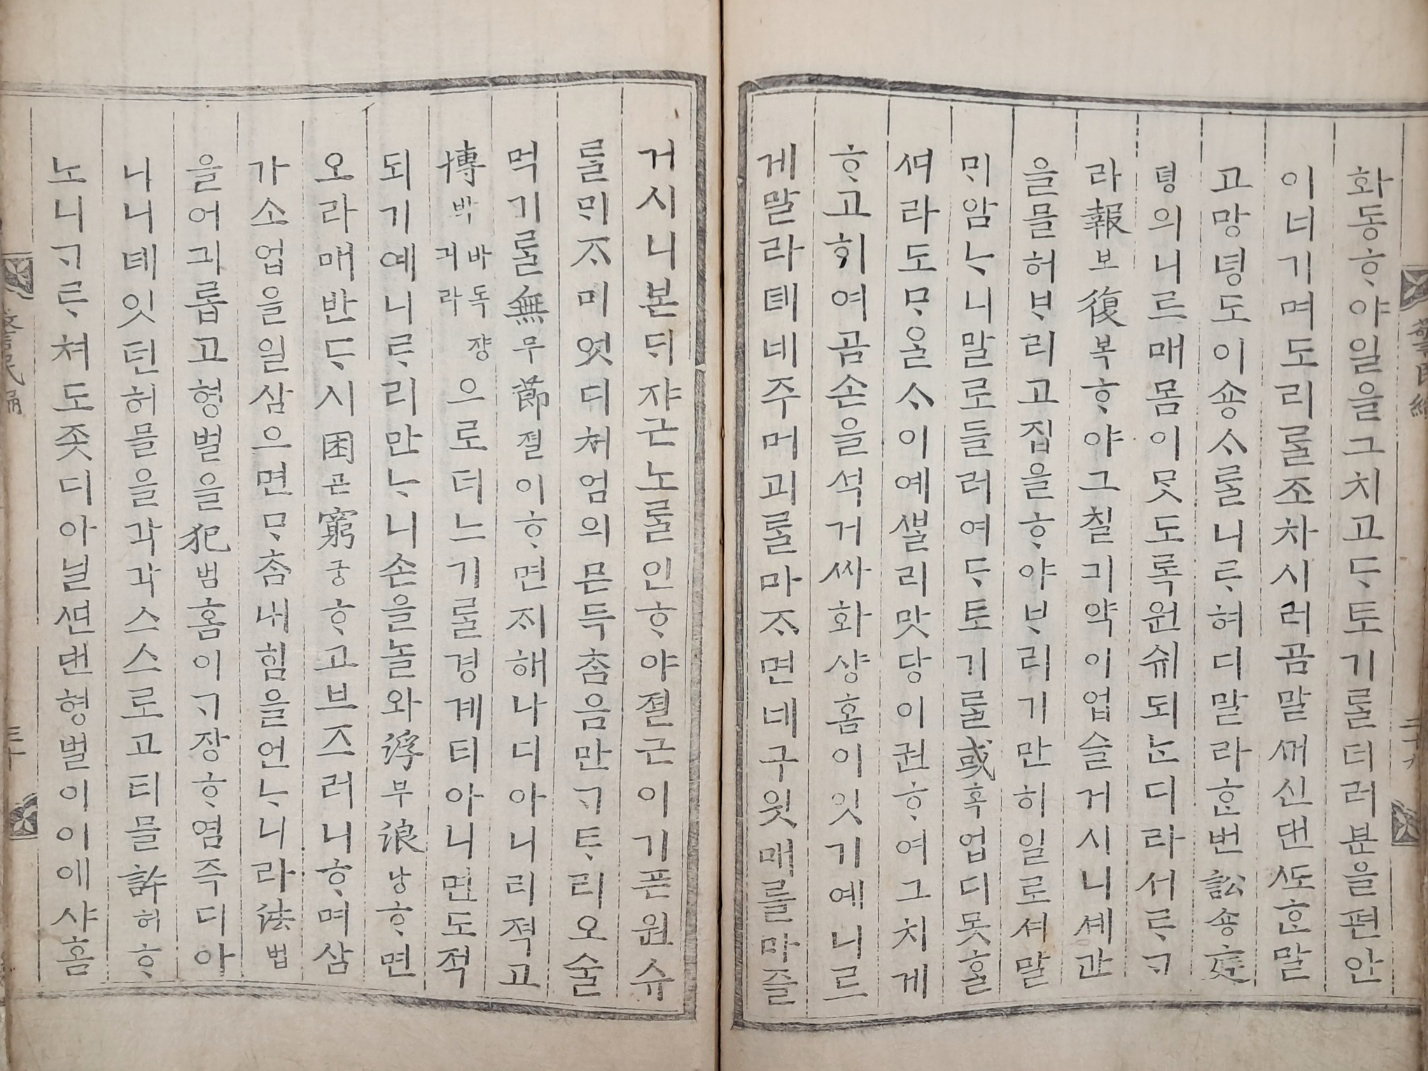 화동ᄒᆞ야일을그치고ᄃᆞ토기ᄅᆞᆯ더러분을편안
이너기며도리ᄅᆞᆯ조차시러곰말ᄭᅢ신댄ᄯᅩᄒᆞᆫ말
고망녕도이숑ᄉᆞᄅᆞᆯ니ᄅᆞ혀디말라ᄒᆞᆫ번訟숑庭
뎡의니르매몸이ᄆᆞᆺ도록원슈되ᄂᆞᆫ디라서ᄅᆞᄀᆞ
라報보復복ᄒᆞ야그칠긔약이업슬거시니셰간
을믈허ᄇᆞ리고집을ᄒᆞ야ᄇᆞ리기만히일로셔말
믜암ᄂᆞ니말로들러여ᄃᆞ토기ᄅᆞᆯ或혹업디못ᄒᆞᆯ
셔라도ᄆᆞ올ᄉᆞ이예ᄲᆞᆯ리맛당이권ᄒᆞ여그치게
ᄒᆞ고ᄒᆡ여곰손을석거싸화샹홈이잇기예니르
게말라톄네주머괴ᄅᆞᆯ마ᄌᆞ면네구윗매ᄅᆞᆯ마즐
거시니본ᄃᆡ쟈근노ᄅᆞᆯ인ᄒᆞ야졀근이기픈원슈
ᄅᆞᆯᄆᆡᄌᆞ미엿디처엄의믄득ᄎᆞᆷ음만ᄀᆞᄐᆞ리오술
먹기ᄅᆞᆯ無무節졀이ᄒᆞ면ᄌᆡ해나디아니리젹고
博박바독쟝긔라으로더느기ᄅᆞᆯ경계티아니면도적
되기예니ᄅᆞ리만ᄂᆞ니손을놀와浮부浪낭ᄒᆞ면
오라매반ᄃᆞ시困곤窮궁ᄒᆞ고브즈러니ᄒᆞ며삼
가소업을일삼으면ᄆᆞᄎᆞᆷ내힘을언ᄂᆞ니라法법
을어긔롭고형벌을犯범홈이ᄀᆞ장ᄒᆞ염즉디아
니니톄잇던허믈을각각스스로고티믈許허ᄒᆞ
노니ᄀᆞᄅᆞ쳐도좃디아닐션댄형벌이이에샤홈